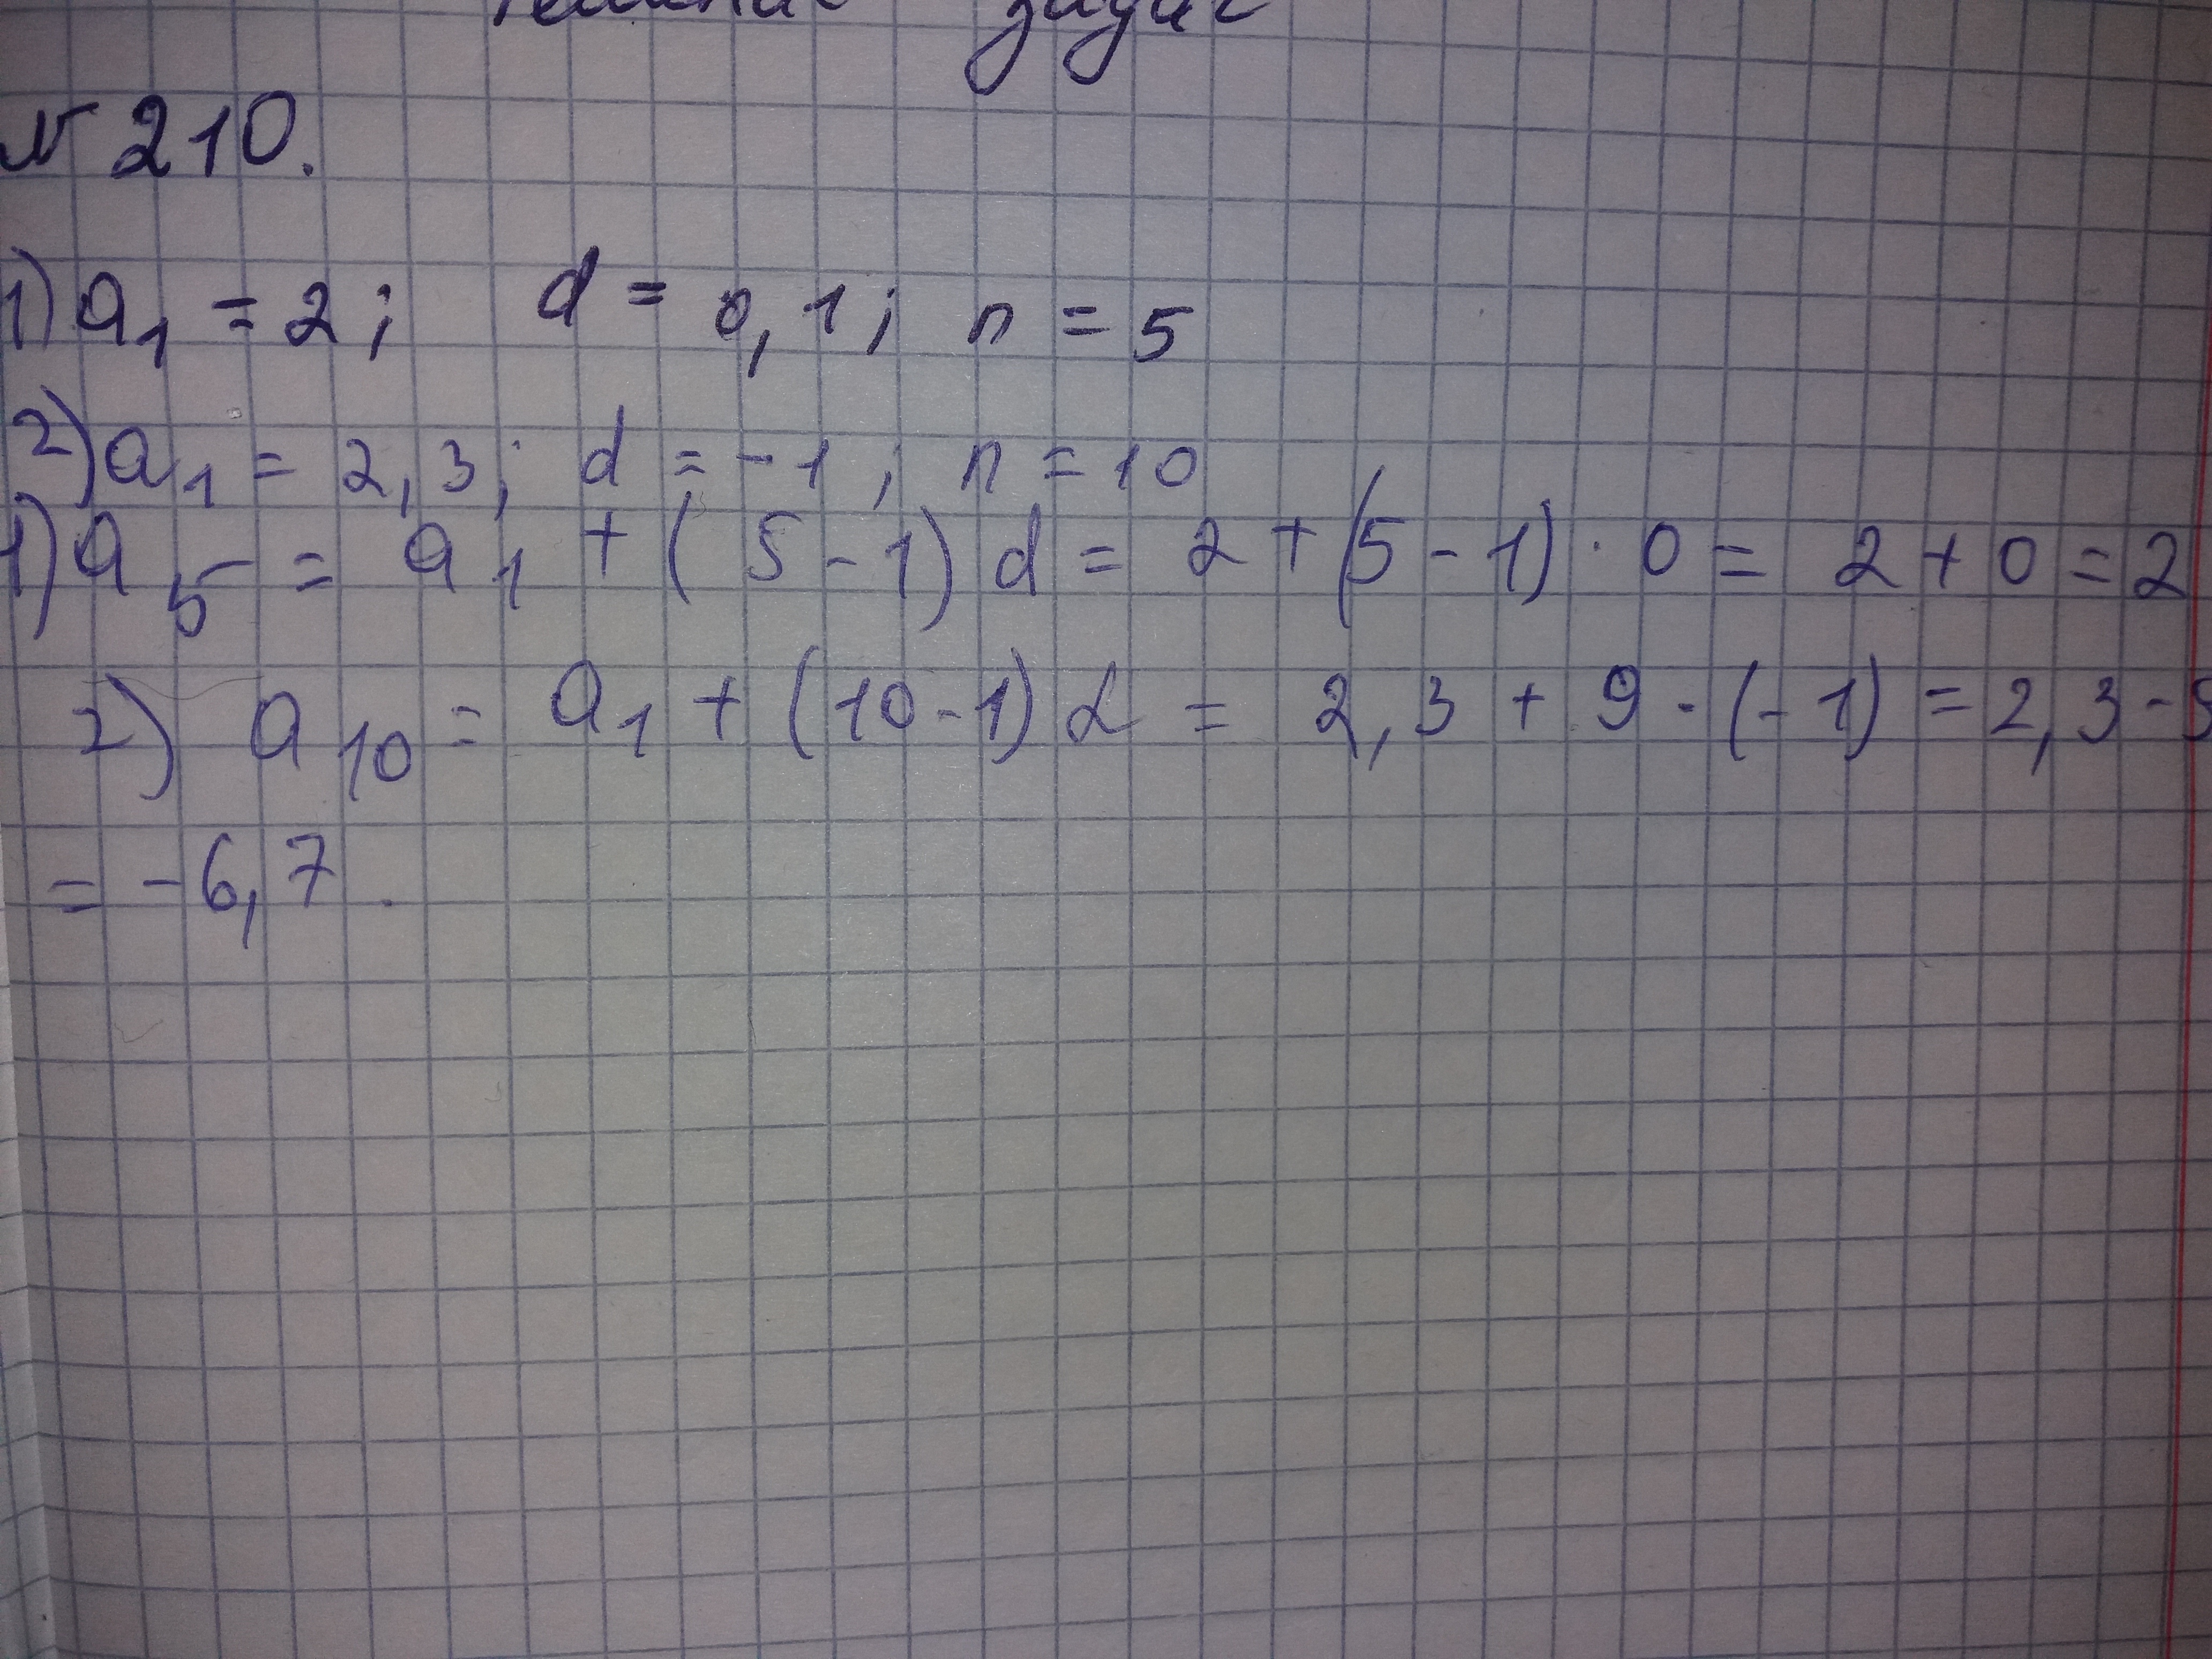 № 210.
1) a₁ = 2; d = 0,1; n = 5
2) a₁ = 2,3; d = -1; n = 10
1) a₅ = a₁ + (5-1) d = 2 + (5-1) · 0 = 2 + 0 = 2
2) a₁₀ = a₁ + (10-1) d = 2,3 + 9 · (-1) = 2,3 -
= -6,7.